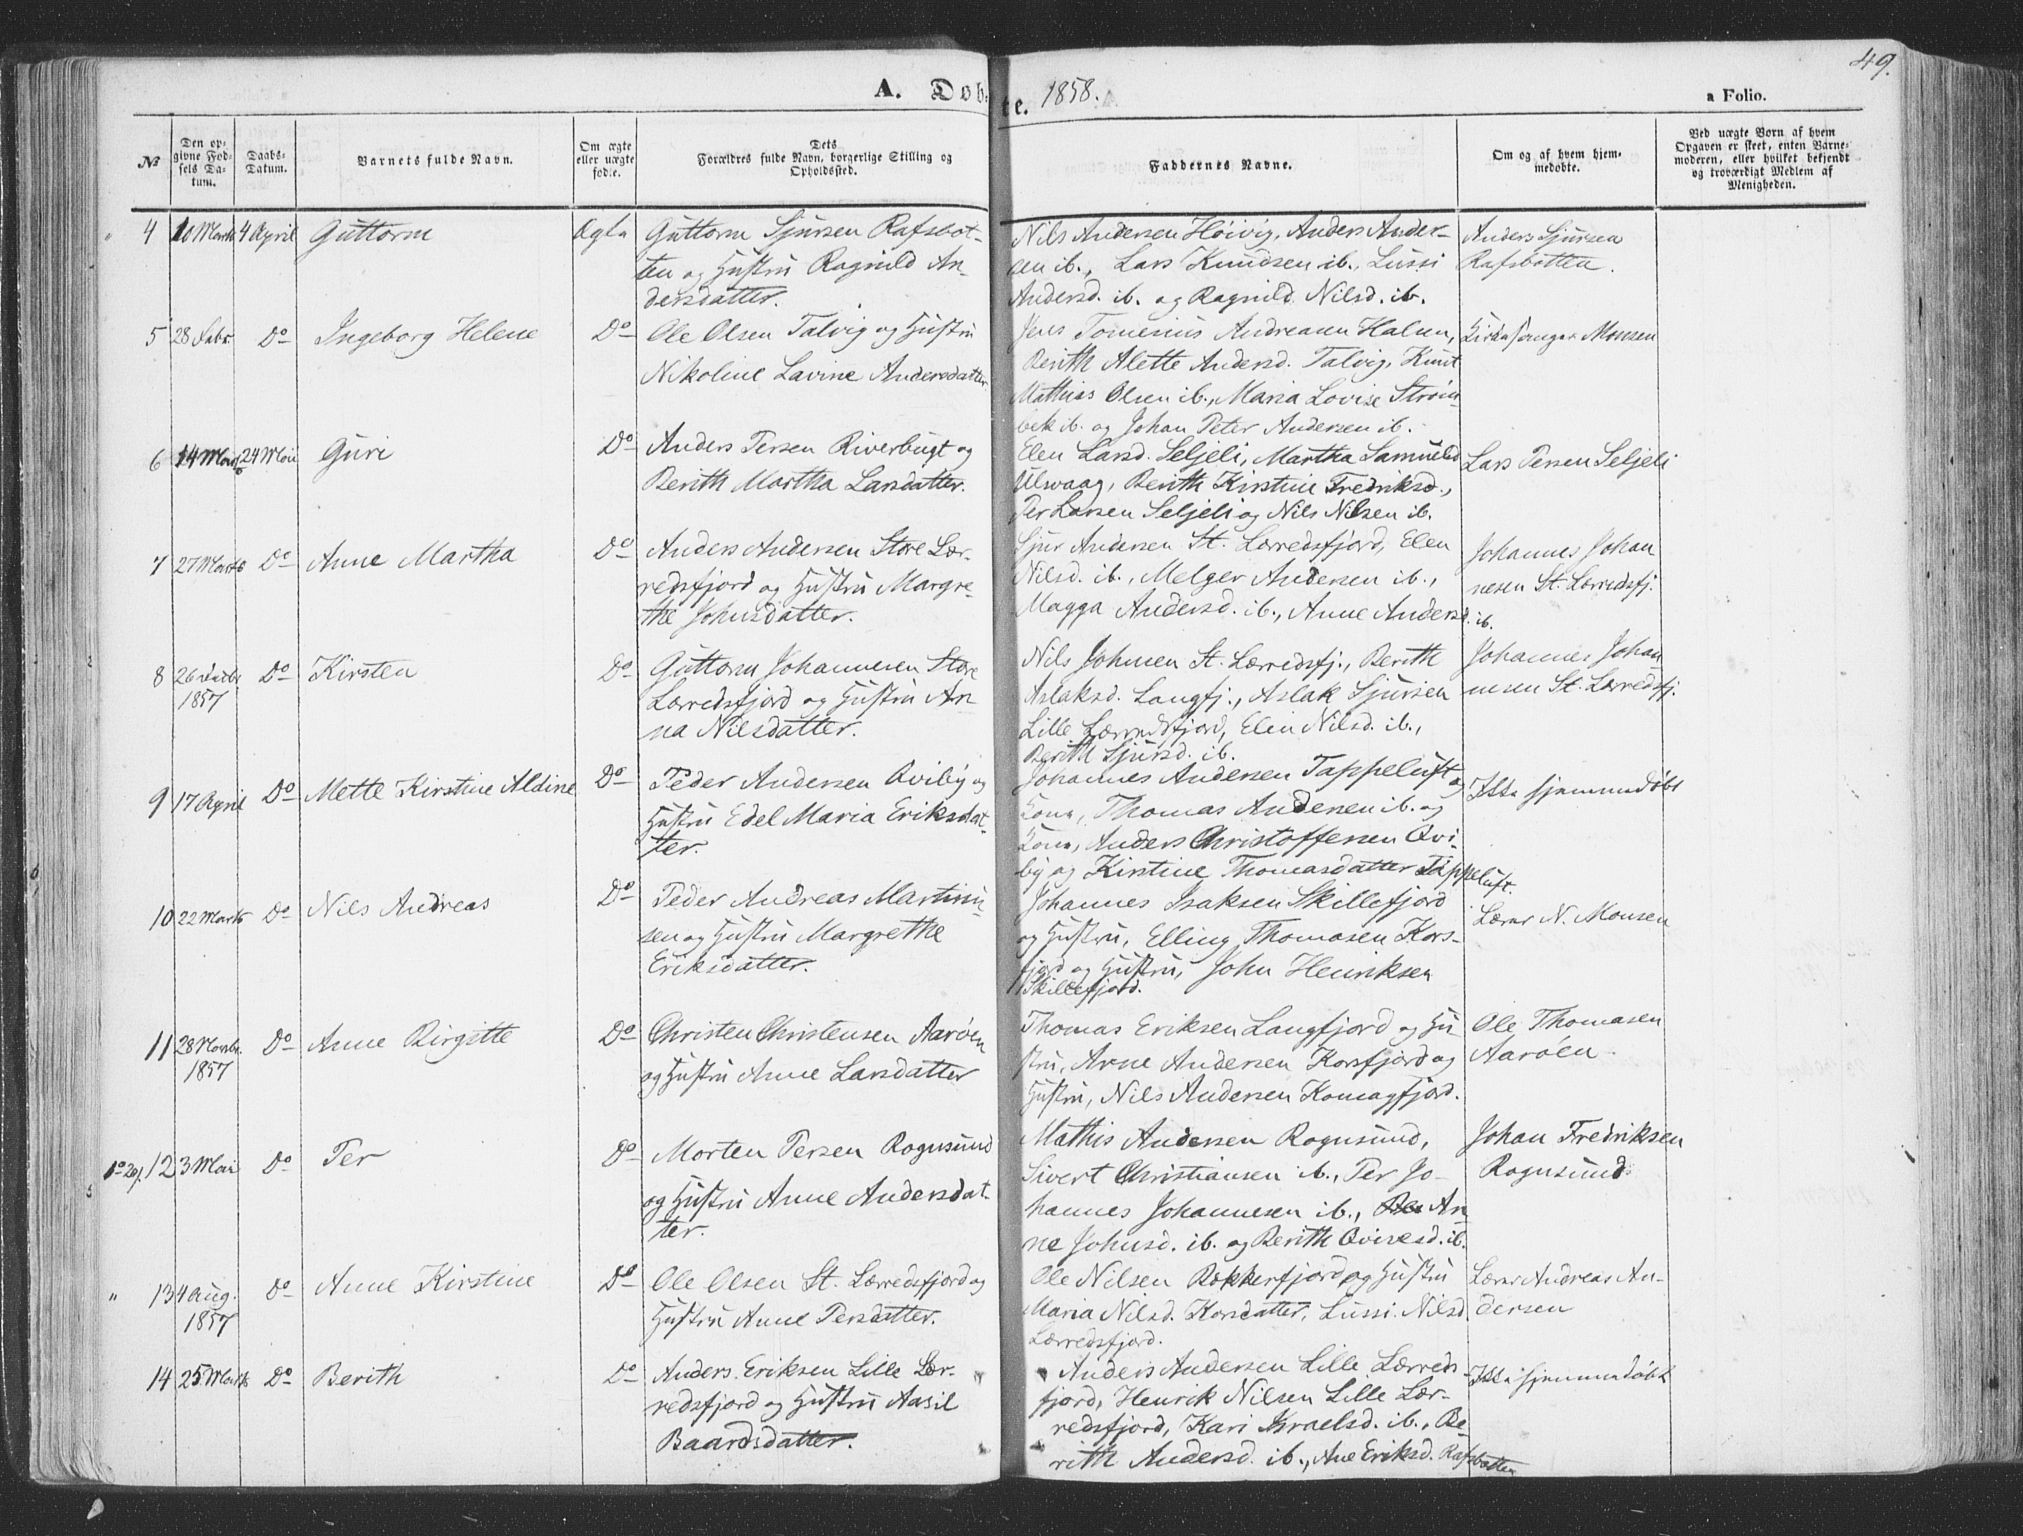 49.
A. Døbte. 1858.
a Folio.
№
Den op-
givne Fød-
sels Da-
tum.
Daabs-
Datum.
Barnets fulde Navn.
Om ægte
eller uægte
født.
Dets
Forældres fulde Navn, borgerlige Stilling og
Opholdssted.
Faddernes Navne.
Om og af hvem hjem-
medøbte.
Ved uægte Børn af hvem
Opgaven er skeet, enten Barne-
moderen, eller hvilket bekjendt
og troværdigt Medlem af
Menigheden.
" 4 10 Marts 4 April Guttorm Ægte
Guttorm Sjursen Rafsbot-
ten og Hustru Ragnild An-
dersdatter.
Nils Andersen Høivig, Anders Ander-
sen ib., Lars Knudsen ib., Lussi
Andersd. ib. og Ragnild Nilsd. ib.
Anders Sjursen
Rafsbotten.
5 28 Febr. Do Ingeborg Helene Do
Ole Olsen Talvig og Hustru
Nikoline Lavine Andersdatter
Jens Tomenius Andreasen Halsen,
Berith Alette Andersd. Talvig, Knut
Mathias Olsen ib., Maria Lovise Strøm-
bek ib. og Johan Peter Andersen ib.
Kirkesanger Monsen
6 14 Marts 24 Mai Guri Do
Anders Persen Riverbugt og
Berith Martha Larsdatter.
Elen Larsd. Seljeli, Martha Samuelsd
Ulsvaag, Berith Kirstine Fredriksd.,
Per Larsen Seljeli og Nils Nilsen ib.
Lars Persen Seljeli
7 27 Marts Do Anne Martha Do
Anders Andersen Store Lær-
redsfjord og Hustru Margre-
the Johnsdatter.
Sjur Andersen St. Lærredsfjord, Elen
Nilsd. ib., Melger Andersen ib.,
Magga Andersd. ib., Anne Andersd. ib.
Johannes Johan
nesen St. Lærredsfj.
8 26 Decbr
1857 Do Kirsten Do
Guttorm Johannesen Store
Lærredsfjord og Hustru An
na Nilsdatter.
Nils Johnsen St. Lærredsfj., Berith
Aslaksd. Langfj., Aslak Sjursen
Lille Lærredsfjord, Elen Nilsd. ib.,
Berith Sjursd. ib.
Johannes Johan
nesen St. Lærredsfj.
9 17 April Do Mette Kirstine Aldine Do
Peder Andersen Qviby og
Hustru Edel Maria Eriksdat-
ter.
Johannes Andersen Tappeluft og
Kone, Thomas Andersen ib. og
Kone, Anders Christoffersen Qvi-
by og Kirstine Thomasdatter Tappeluft.
Ikke hjemmedøbt
10 22 Marts Do Nils Andreas Do
Peder Andreas Martinu-
sen og Hustru Margrethe
Eriksdatter.
Johannes Isaksen Skillefjord
og Hustru, Elling Thomasen Kors-
fjord og Hustru, John Henriksen
Skillefjord.
Lærer N. Monsen
11 28 Novbr.
1857 Do Anne Birgitte Do
Christen Christensen Aarøen
og Hustru Anne Larsdatter
Thomas Eriksen Langfjord og Hu
stru, Arne Andersen Korsfjord og
Hustru, Nils Andersen Komagfjord.
Ole Thomasen
Aarøen.
12 3 Mai Do Per Do
Morten Persen Rognsund
og Hustru Anne Andersdat-
ter.
Mathis Andersen Rognsund,
Sivert Christiansen ib., Per Jo-
hannes Johannesen ib., An
ne Johnsd. ib. og Berith Qvivesd. ib.
Johan Fredriksen
Rognsund
" 13 4 Aug.
1857 Do Anne Kirstine Do
Ole Olsen St. Lærredsfjord og
Hustru Anne Persdatter.
Ole Nilsen Rokkerfjord og Hustru
Maria Nilsd. Korsdatter, Lussi Nilsd
Lærredsfjord.
Lærer Andreas An-
dersen
14 25 Marts Do Berith Do
Anders Eriksen Lille Lær-
redsfjord og Hustru Aasil
Baardsdatter.
Anders Andersen Lille Lærreds-
fjord, Henrik Nilsen Lille Lær-
redsfjord, Kari Israelsd. ib., Be-
rith Andersd. ib., Ane Eriksd. Rafsbotten
Ikke hjemmedøbt